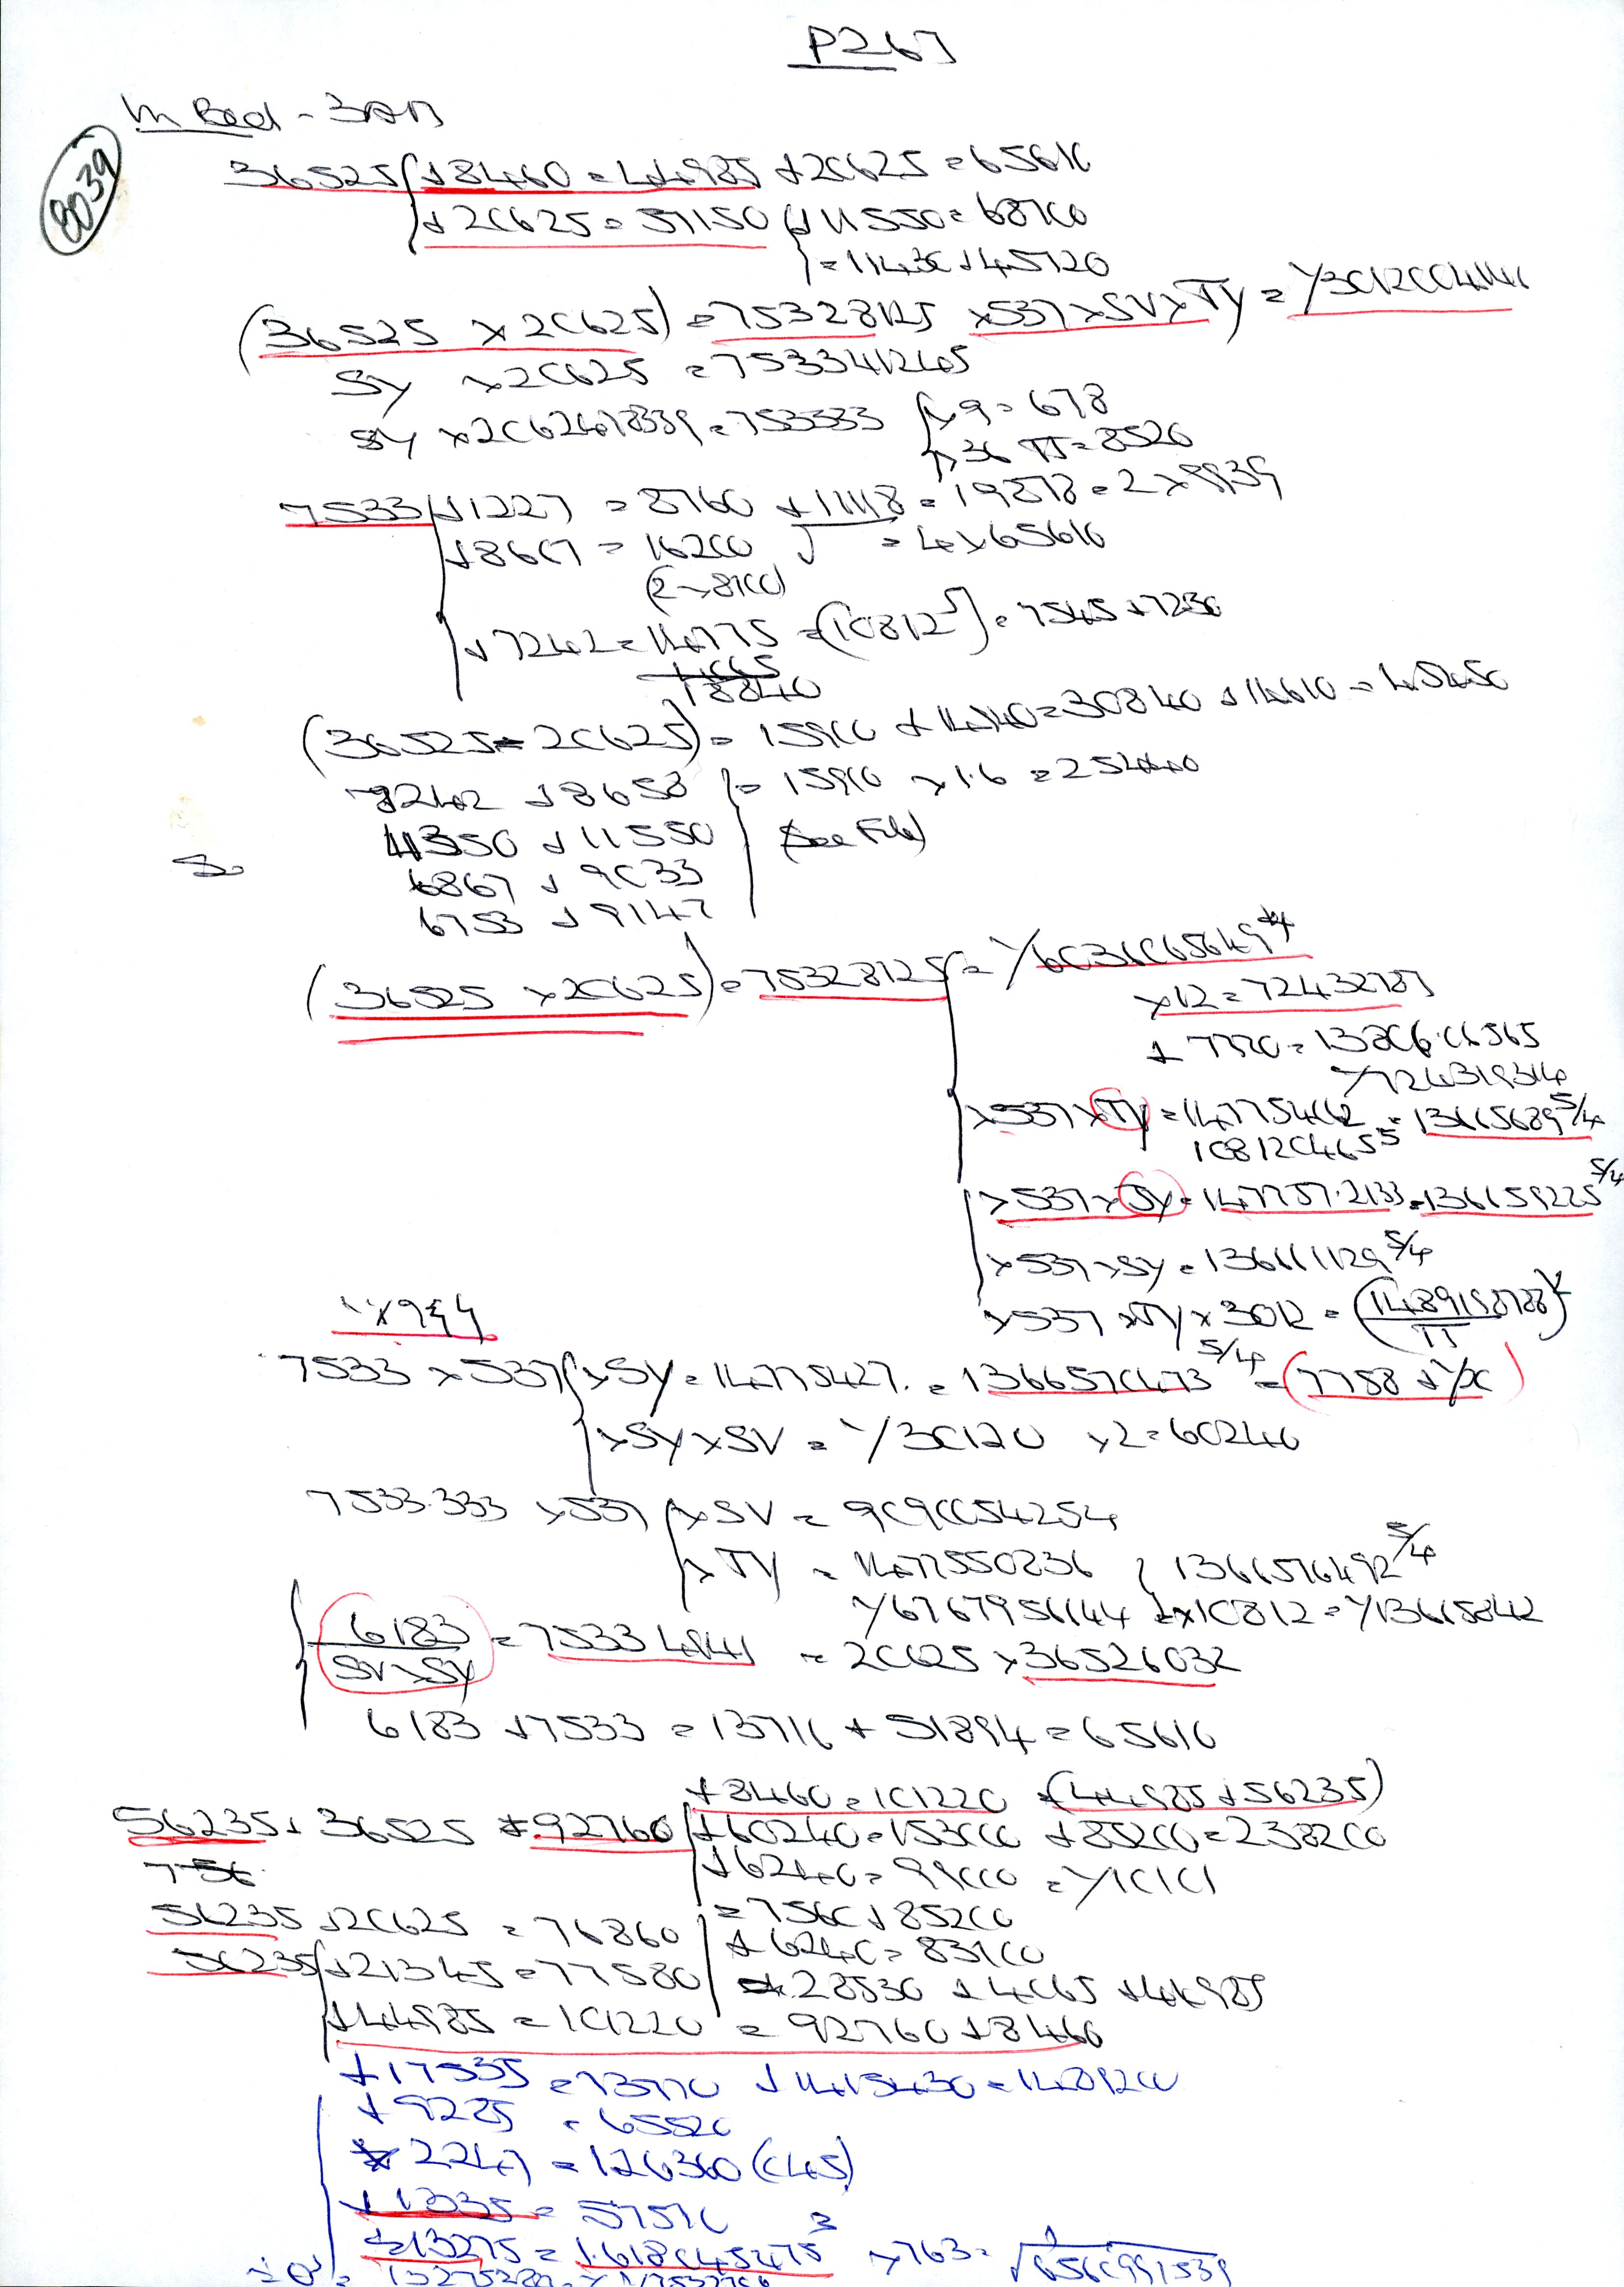 P267
In Bed - 3AM
8039
36525 + 8460 = 44985 + 20625 = 65610
+ 20625 = 57150 + 11550 = 68700
= 11430 + 45720
(36525 × 20625) = 75328125 × 537 × SV × TY = 1/3012004141
SY × 20625 = 7533412405
SY × 2062478339 = 753333 × 9 = 678
× 36 TT = 8520
7533 + 1227 = 8760 + 11118 = 19878 = 2 × 9939
+ 8667 = 16200 = 4 × 65610
(2 × 8100)
+ 7242 = 14775 = (10812⁵) = 7545 + 7230
18840
(36525 - 20625) = 15900 + 14940 = 30840 + 14610 = 45450
7242 + 8658 = 15900 × 1.6 = 25440
4350 + 11550 (See File)
6867 + 9033
6753 + 9147
(36525 × 20625) = 75328125 = 1/6036065649⁴
× 12 = 72432787
+ 7770 = 13806.06565
1/724319314
× 537 × TY = 147754612 = 13665689 5/4
108120465⁵
× 537 × SY = 147757.2133 = 136659225 5/4
× 537 × SY = 136611129 5/4
× 537 × TY × 3012 = (1489158788/π)²
7533 × 537 × SY = 14775427 = 1366570473 5/4 = (7758 + 1/x)
× SY × SV = 1/30120 × 2 = 60240
7533.333 × 537 × SV = 9090054254
× TY = 1477550236 1366576492 5/4
1/6767956144 × 10812 = 1/13665842
6183 / SV × SY = 75334941 = 20625 × 36526032
6183 + 7533 = 13716 + 51894 = 65610
+ 8460 = 101220 (44985 + 56235)
56235 + 36525 = 92760 + 60240 = 153000 + 85200 = 238200
+ 6240 = 99000 = 1/10101
= 7560 + 85200
56235 + 20625 = 76860 + 6240 = 83100
56235 + 21345 = 77580 = 28530 + 4065 + 44985
+ 44985 = 101220 = 92760 + 8460
+ 17535 = 73770 + 1415430 = 1489200
+ 9285 = 65520
× 2247 = 126360 (C45)
+ 1335 = 57570
÷ 13275 = 1.618045475³ × 763 =